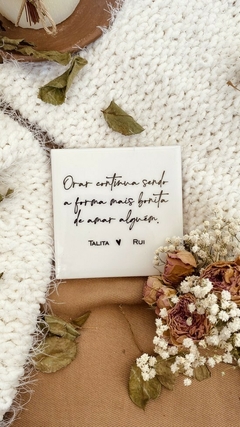 Orar continua sendo
a forma mais bonita
de amar alguém.
Talita ♥ Rui